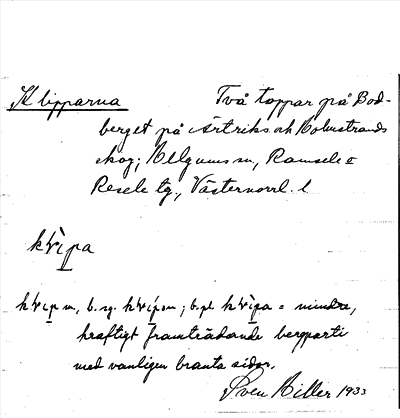 Klipparna Två toppar på Bod-
berget på Ärtriks och Holmstrands
skog; Helgums sn, Ramsele &
Resele tg, Västernorrl. l
kḷipa
kḷip m, b. sg. kḷipən; b. pl. kḷipa = mindre,
kraftigt framträdande bergparti
med vanligen branta sidor.
Sven Hiller 1933